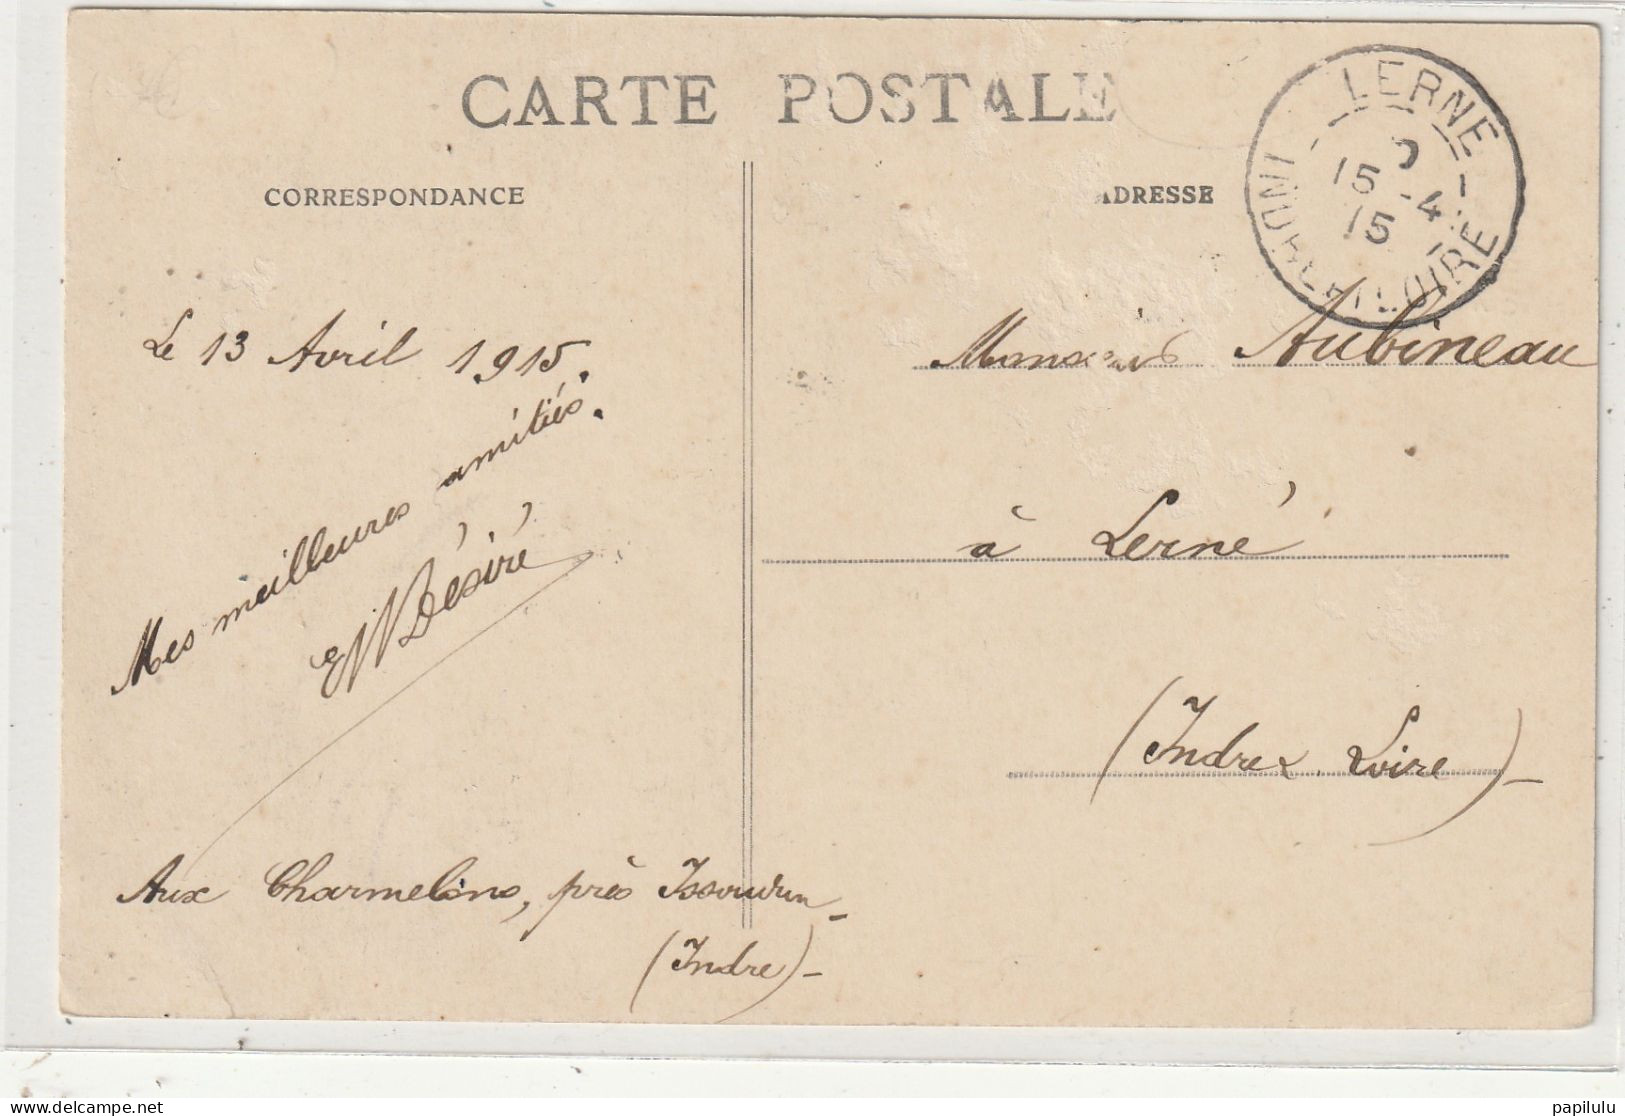 CARTE POSTALE
CORRESPONDANCE
ADRESSE
LERNE
15 -4
15
INDRE-ET-LOIRE
Le 13 Avril 1915.
Mes meilleures amitiés.
Désiré
Aux Charmelons, près Issoudun
(Indre)-
Monsieur Aubineau
à Lerné
(Indre & Loire)-
papilulu